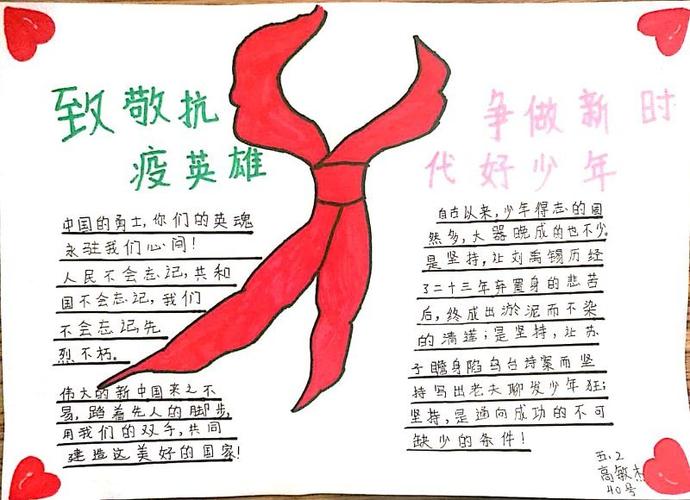 致敬抗
疫英雄
中国的勇士,你们的英魂
永驻我们心间!
人民不会忘记,共和
国不会忘记,我们
不会忘记,先
烈不朽。
伟大的新中国来之不
易,踏着先人的脚步,
用我们的双手,共同
建造这美好的国家!
争做新时
代好少年
自古以来,少年得志的固
然多,大器晚成的也不少。
是坚持,让刘禹锡历经
了二十三年弃置身的悲苦
后,终成出淤泥而不染
的清莲;是坚持,让苏
子瞻身陷乌台诗案而坚
持写出老夫聊发少年狂;
坚持,是通向成功的不可
缺少的条件!
五.2
高敏杰
40号